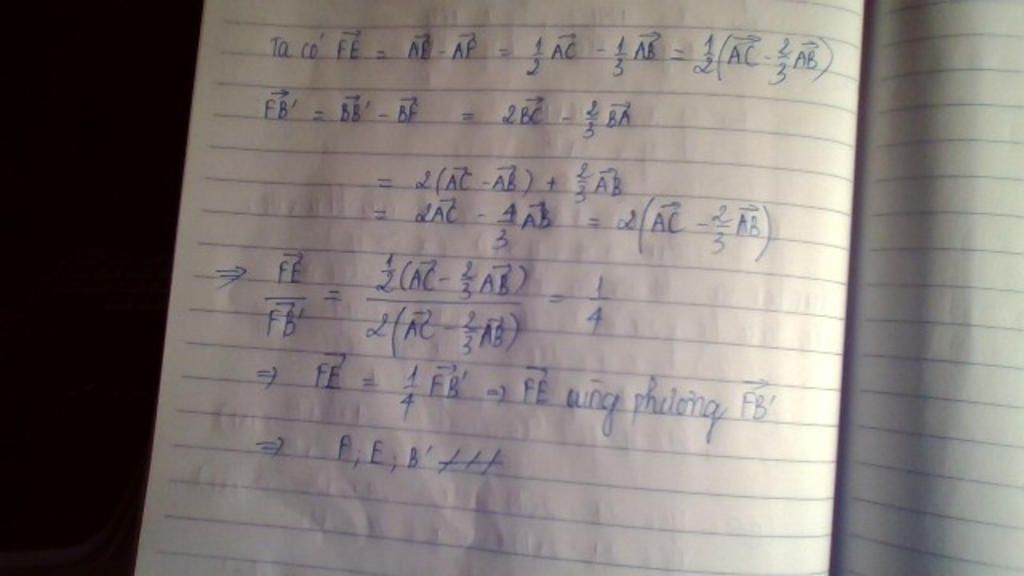 Ta có FE⃗ = AE⃗ - AF⃗ = 1/2 AC⃗ - 1/3 AB⃗ = 1/2(AC⃗ - 2/3 AB⃗)
FB'⃗ = BB'⃗ - BF⃗ = 2BC⃗ - 2/3 BA⃗
= 2(AC⃗ - AB⃗) + 2/3 AB⃗
= 2AC⃗ - 4/3 AB⃗ = 2(AC⃗ - 2/3 AB⃗)
⇒ FE⃗/FB'⃗ = 1/2(AC⃗ - 2/3 AB⃗)/2(AC⃗ - 2/3 AB⃗) = 1/4
⇒ FE⃗ = 1/4 FB'⃗ ⇒ FE⃗ cùng phương FB'⃗
⇒ F, E, B' ///